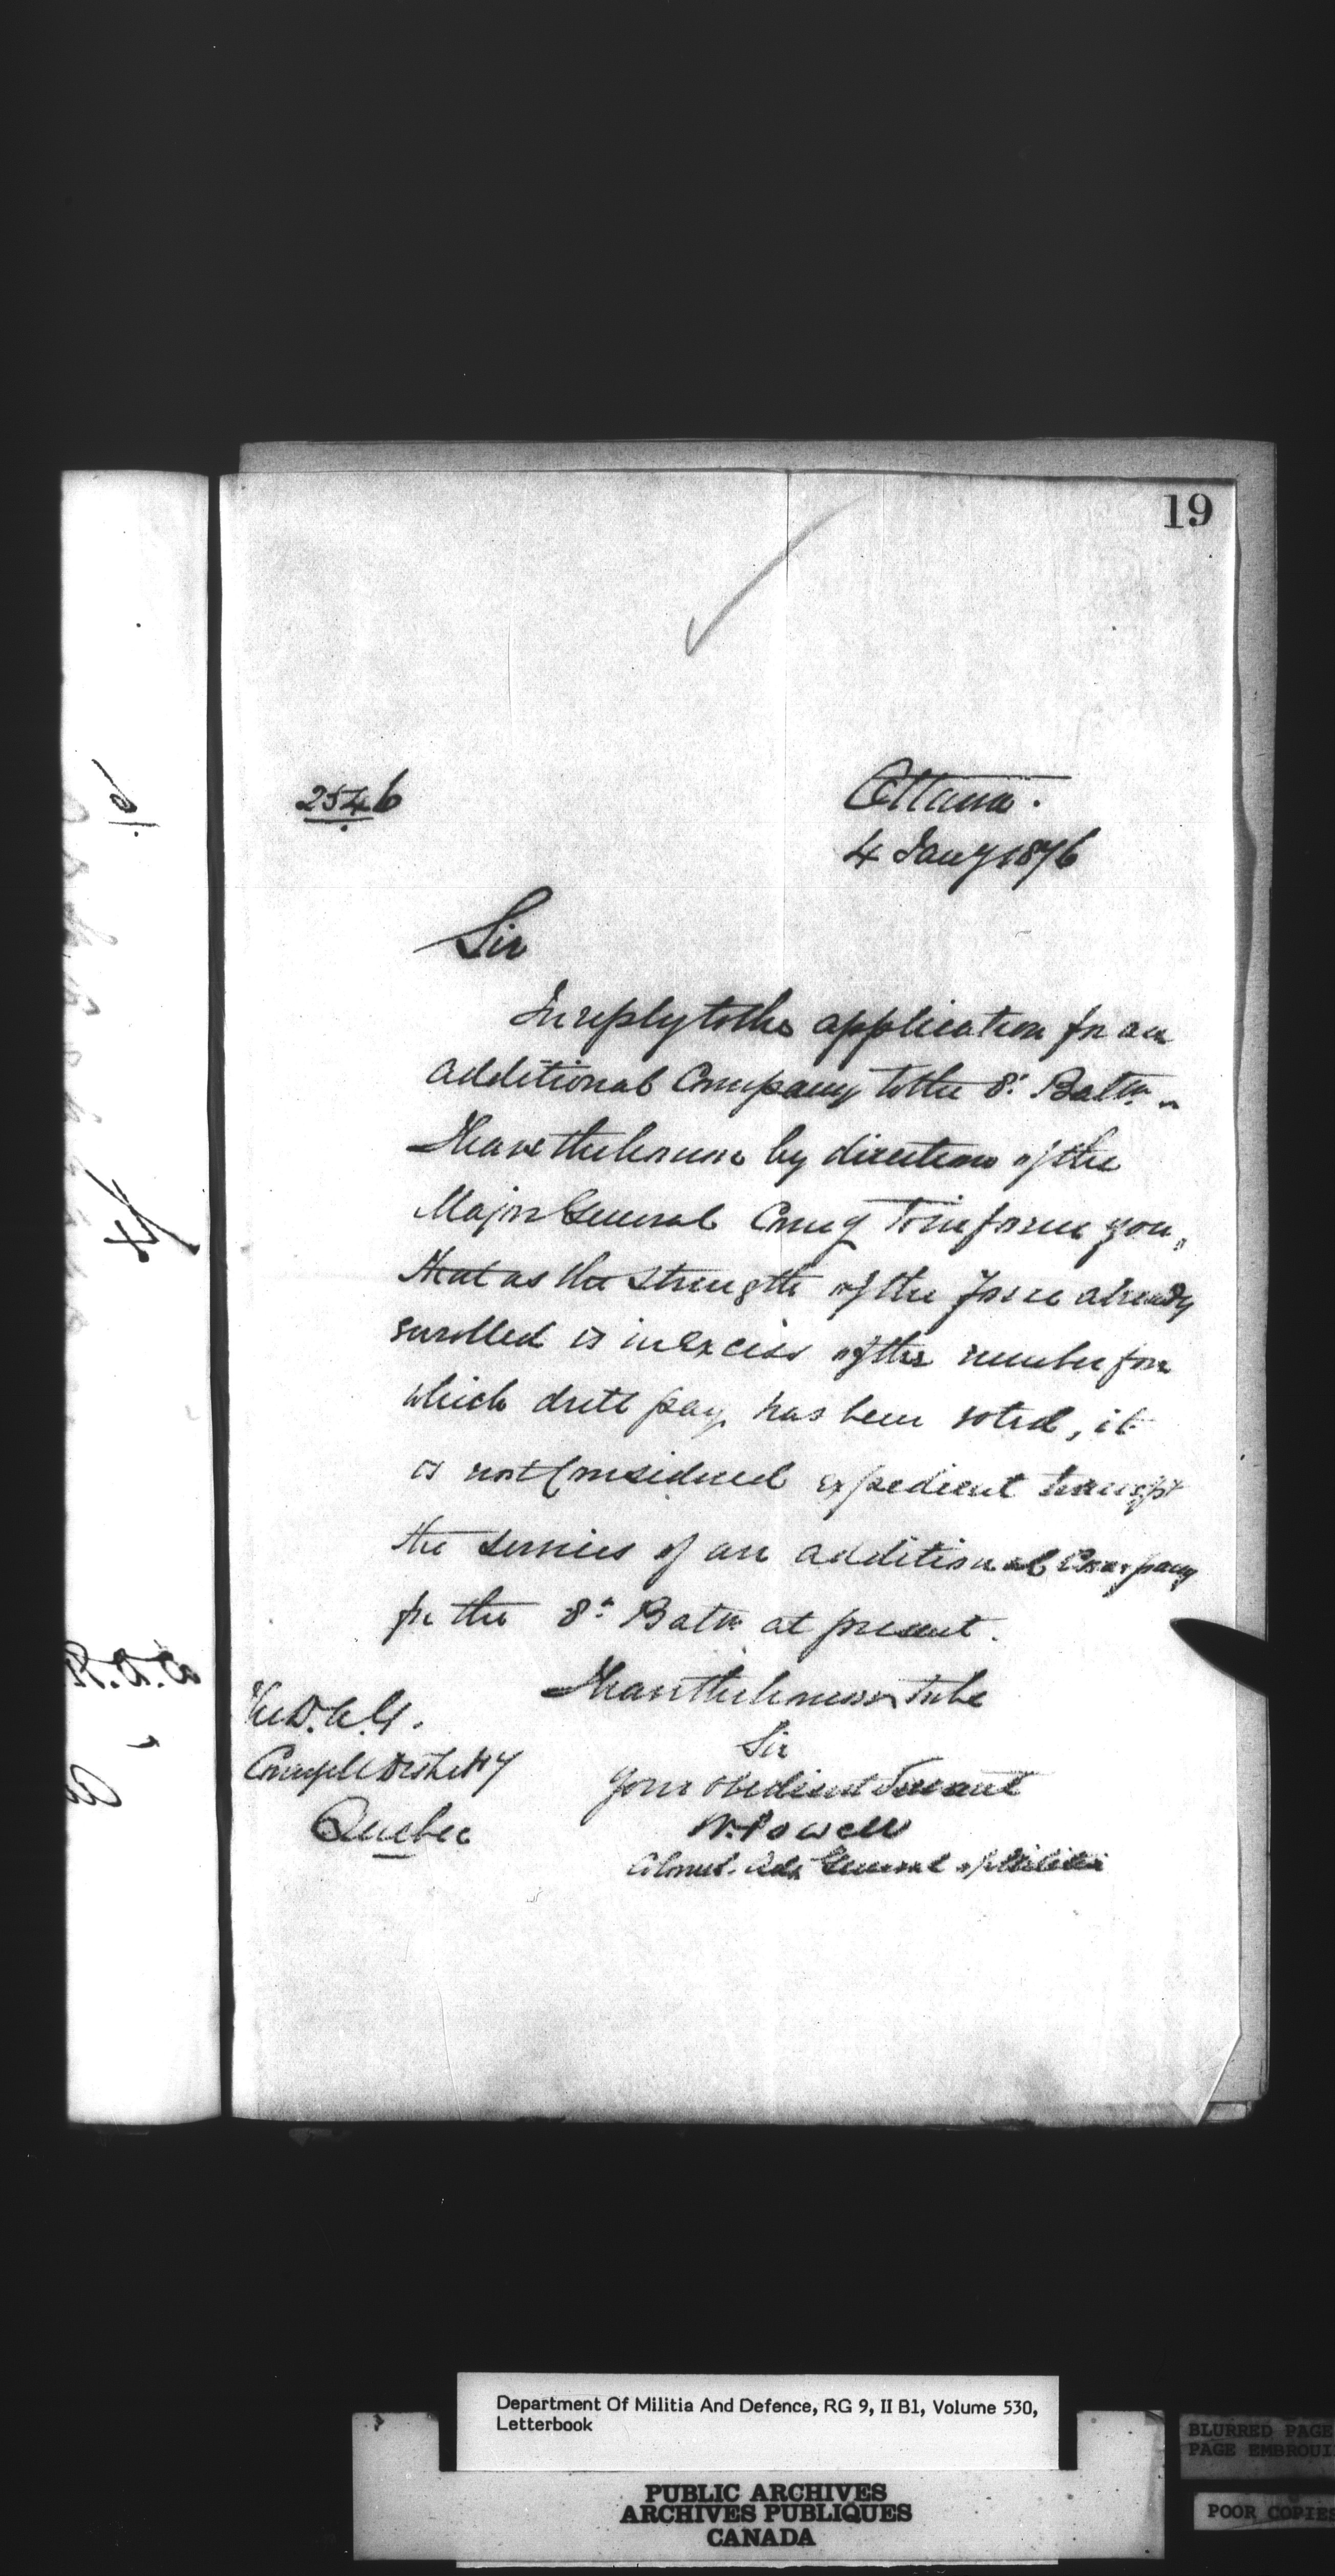 19
2546
Ottawa.
4 Jany 1876
Sir
In reply to the application for an
additional Company to the 8th Battn
I have the honour by direction of the
Major General Comg to inform you,
that as the strength of the Force already
enrolled is in excess of the number for
which drill pay has been voted, it
is not Considered expedient to accept
the services of an additional Company
for the 8th Batn at present.
I have the honour to be
Sir
Your obedient Servant
W. Powell
Colonel. Adj General of Militia
The D.A.G.
Comg Mil District No 7
Quebec
Department Of Militia And Defence, RG 9, II B1, Volume 530,
Letterbook
PUBLIC ARCHIVES
ARCHIVES PUBLIQUES
CANADA
BLURRED PAGE
PAGE EMBROUI
POOR COPIES